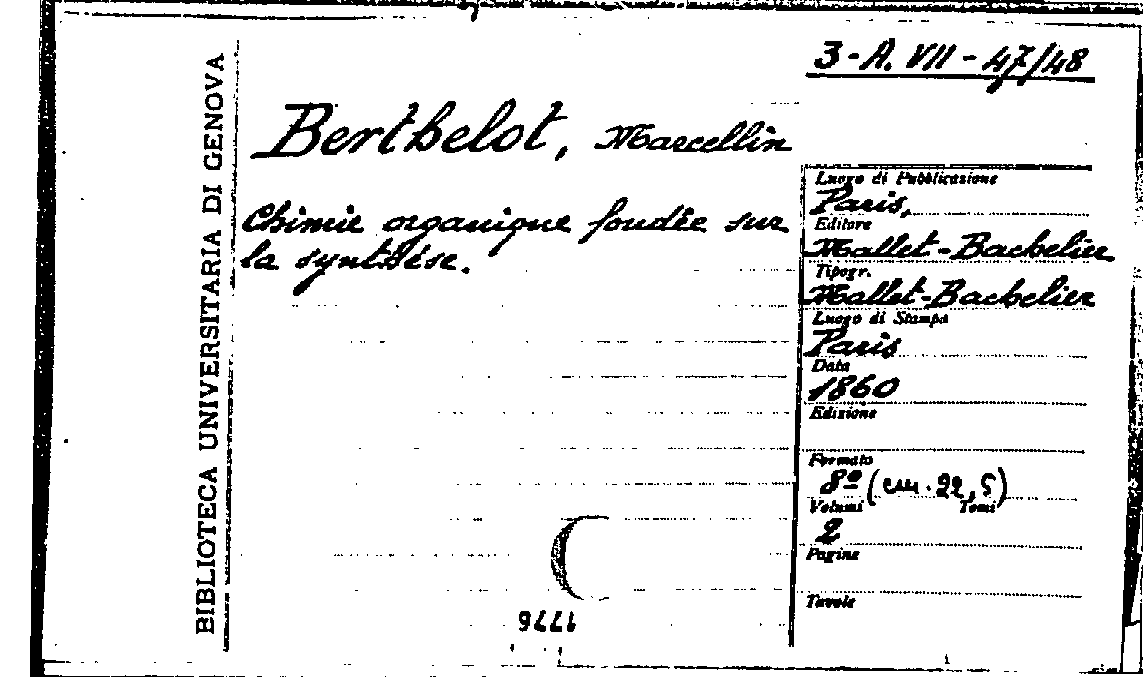 3-A. VII - 47/48
BIBLIOTECA UNIVERSITARIA DI GENOVA
Berthelot, Marcellin
Chimie organique fondée sur
la synthèse.
Luogo di Pubblicazione
Paris,
Editore
Mallet-Bachelier
Tipogr.
Mallet-Bachelier
Luogo di Stampa
Paris
Data
1860
Edizione
Formato
8º (cm. 22,5)
Volumi Tomi
2
Pagine
Tavole
1776